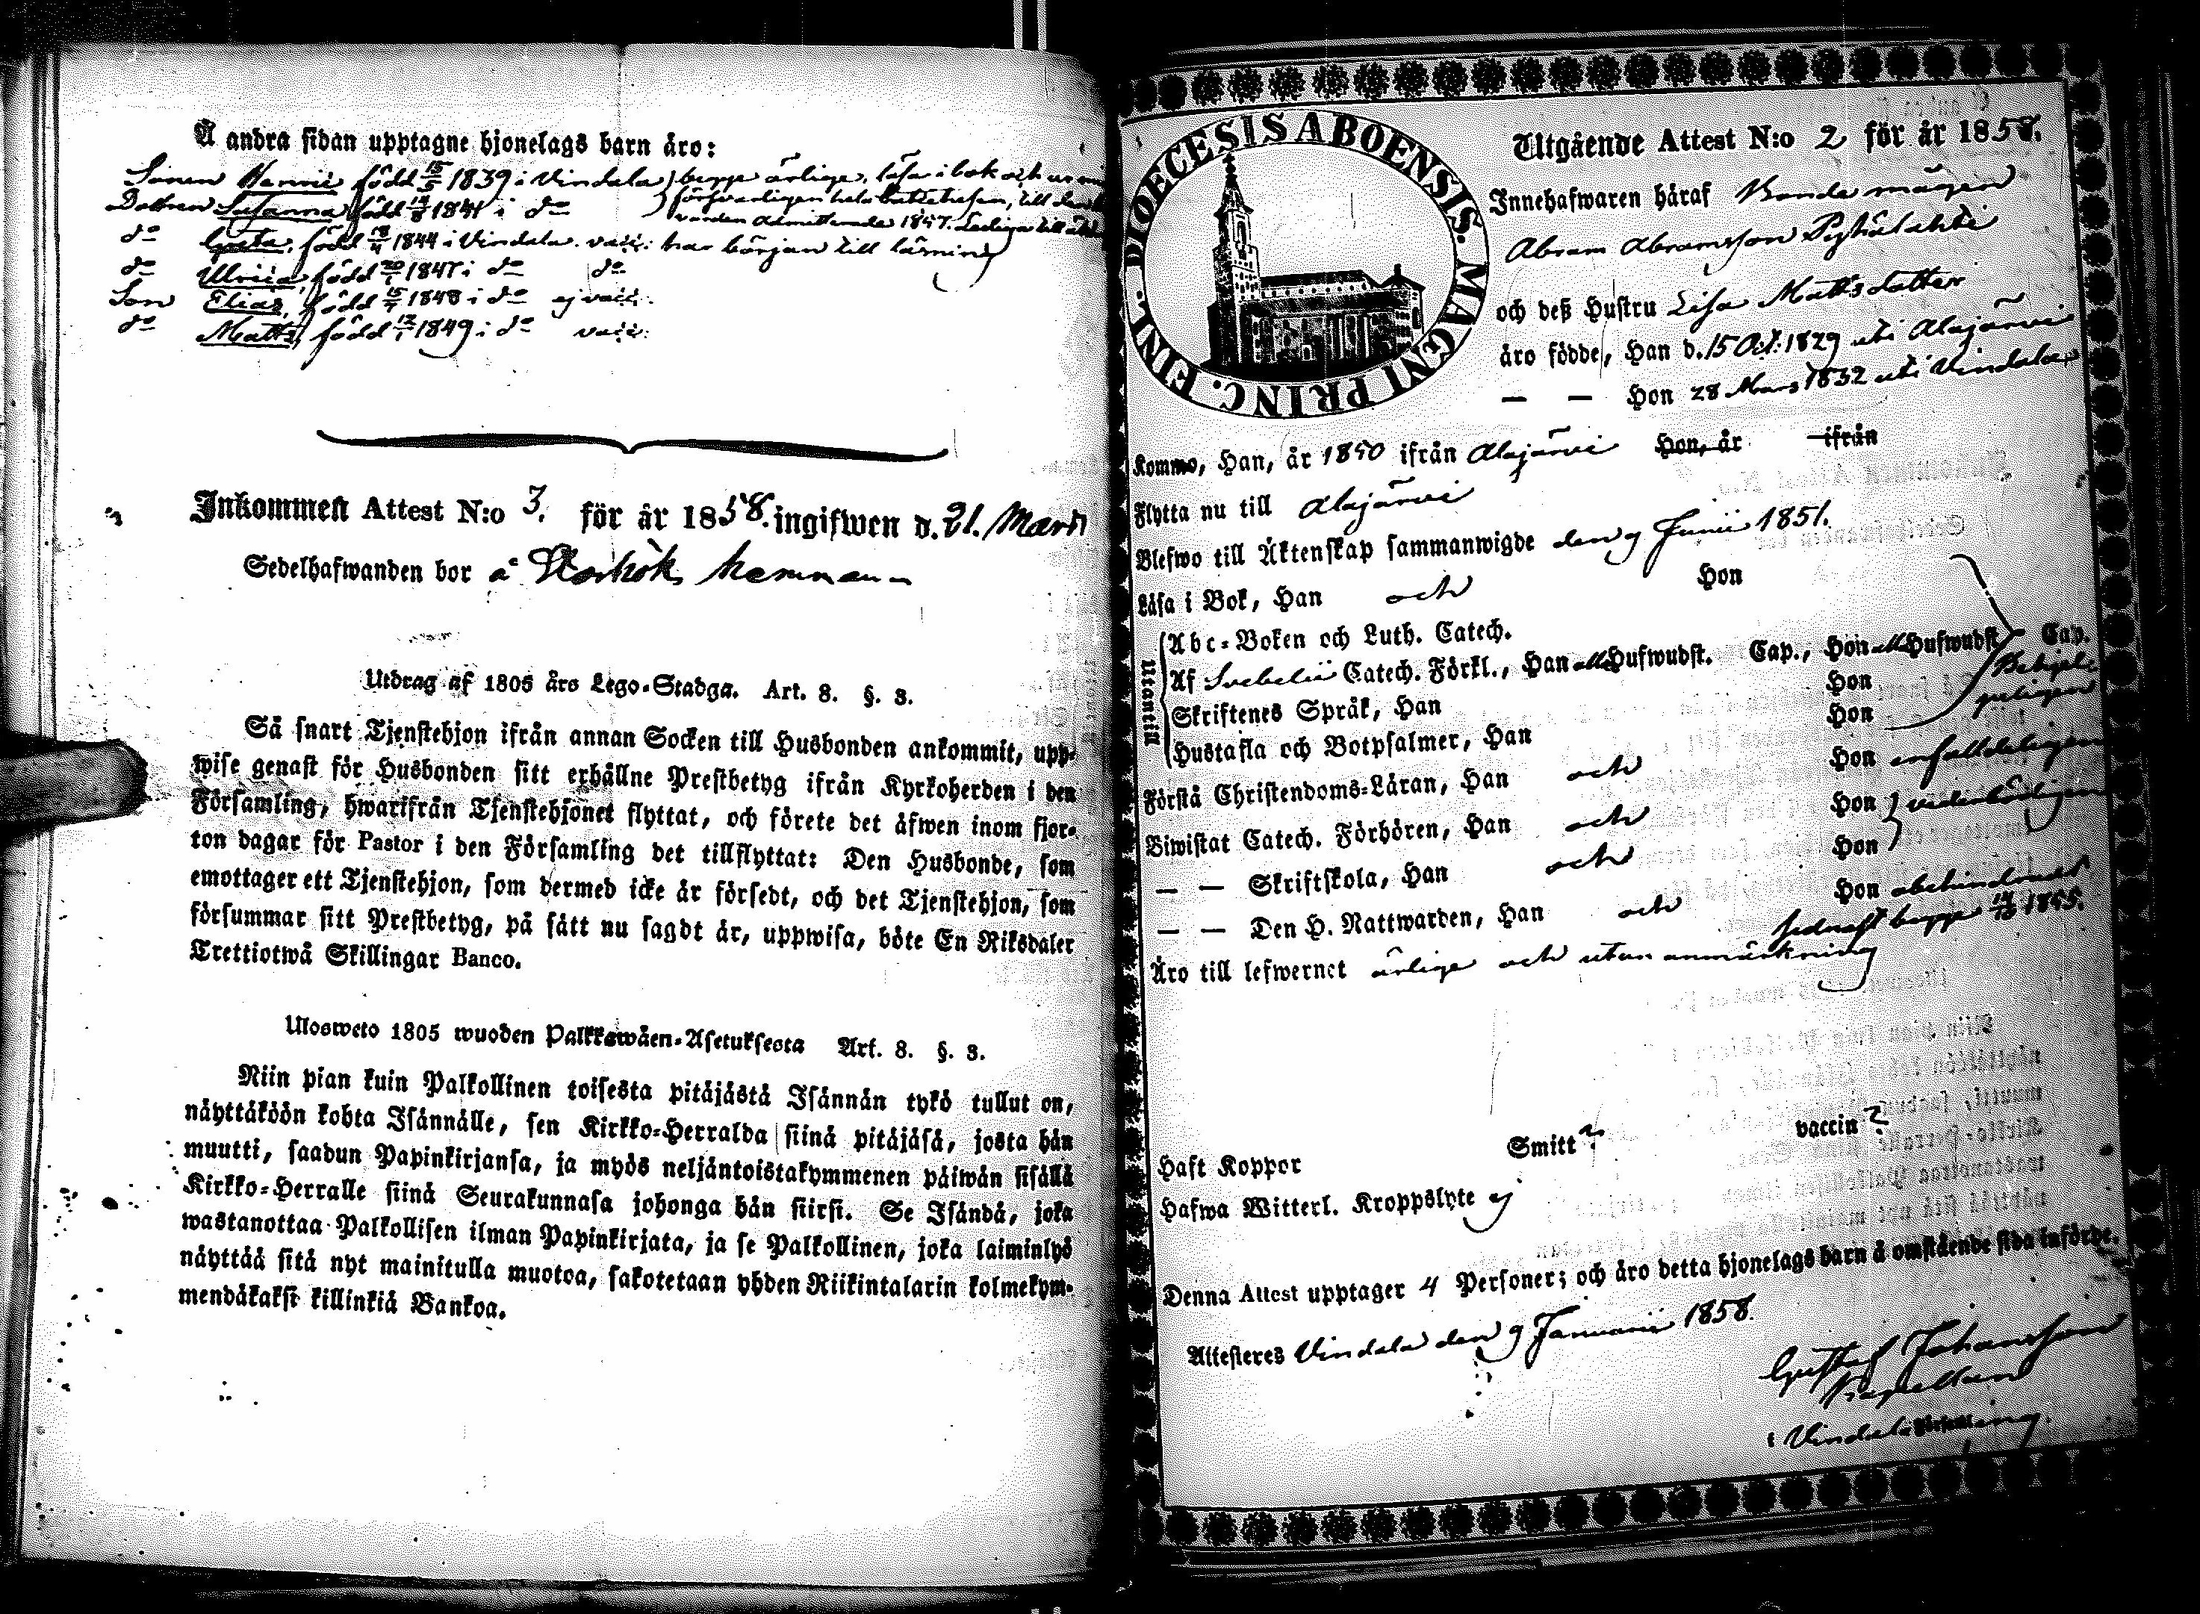 Å andra sidan upptagne hjonelags barn äro:
Sonen Henric född 15/5 1839 i Vindala, begge ärlige, läsa i bok och
Dottren Susanna född 1841 i do försvarligen hela katekesen, till
varden admitterade 1857. Lediga till
do Greta, född 18/4 1844 i Vindala. vacc: har början till läsning
do Ulrica född 1847 i do do
Son Elias, född 1848 i do ej vacc:
do Matts, född 1849 i do vacc:
Inkommen Attest N:o 3. för år 1858. ingifwen d. 21. Mars
Sedelhafwanden bor å hemman
Utdrag af 1805 års Lego-Stadga. Art. 8. §. 3.
Så snart Tjenstehjon ifrån annan Socken till Husbonden ankommit, upp-
wise genast för Husbonden sitt erhållne Prestbetyg ifrån Kyrkoherden i den
Församling, hwarifrån Tjenstehjonet flyttat, och förete det äfwen inom fjor-
ton dagar för Pastor i den Församling det tillflyttat: Den Husbonde, som
emottager ett Tjenstehjon, som dermed icke är försedt, och det Tjenstehjon, som
försummar sitt Prestbetyg, på sätt nu sagdt är, uppwisa, böte En Riksdaler
Trettiotwå Skillingar Banco.
Ulosweto 1805 wuoden Palkkawäen-Asetuksesta Art. 8. §. 3.
Niin pian kuin Palkollinen toisesta pitäjästä Isännän tykö tullut on,
näyttäköön kohta Isännälle, sen Kirkko-Herralda siinä pitäjäsä, josta hän
muutti, saadun Papinkirjansa, ja myös neljäntoistakymmenen päiwän sisällä
Kirkko-Herralle siinä Seurakunnasa johonga hän siirsi. Se Isändä, joka
wastanottaa Palkollisen ilman Papinkirjata, ja se Palkollinen, joka laiminlyö
näyttää sitä nyt mainitulla muotoa, sakotetaan yhden Riikintalarin kolmekym-
mendäkaksi killinkiä Bankoa.
DIOECESIS ABOENSIS. MAGNI PRINC. FINL.
Utgående Attest N:o 2 för år 1858.
Innehafwaren häraf Bonde mågen
Abram Abramsson Pyhälahti
och deß Hustru Lisa Mattsdotter
äro födde, Han d. 15 Oct: 1829 uti Alajärvi
— — Hon 28 Mars 1832 uti Vindala
Kommo, Han, år 1850 ifrån Alajärvi Hon, år ifrån
Flytta nu till Alajärvi
Blefwo till Äktenskap sammanwigde den 9 Junii 1851.
Läsa i Bok, Han och Hon
Utanetill
Abc-Boken och Luth. Catech.
Af Svebelii Catech. Förkl., Han alla Hufwudst. Cap., Hon alla Hufwudst. Cap.
Skriftenes Språk, Han Hon
Hustafla och Botpsalmer, Han Hon
Förstå Christendoms-Läran, Han och Hon enfaldeligen
Biwistat Catech. Förhören, Han och Hon vederbörligen
— — Skriftskola, Han och Hon
— — Den H. Nattwarden, Han och Hon obehindrade
sednast begge 1855.
Äro till lefwernet ärlige och utan anmärkning
Haft Koppor Smitt ? vaccin ?
Hafwa Witterl. Kroppslyte ej
Denna Attest upptager 4 Personer; och äro detta hjonelags barn å omstående sida införde.
Attesteres Vindala den 9 Januarii 1858.
Gustaf Johansson
Kapellan
i Vindala Församling.